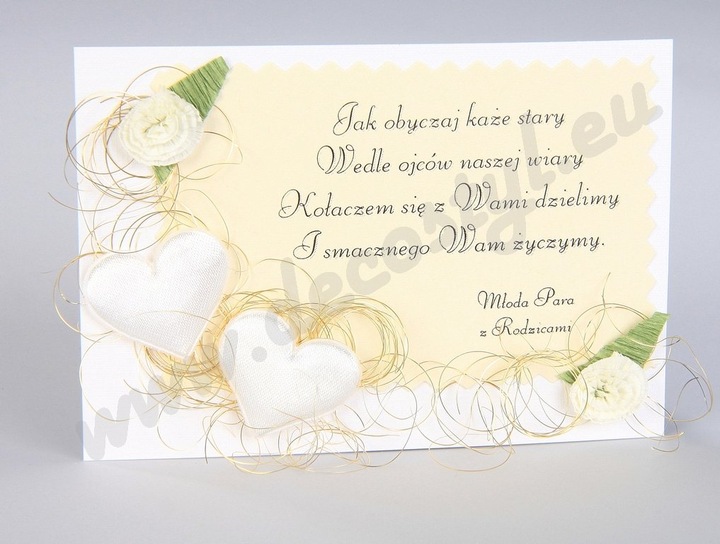 Jak obyczaj każe stary
Wedle ojców naszej wiary
Kołaczem się z Wami dzielimy
I smacznego Wam życzymy.
Młoda Para
z Rodzicami
www.decostyl.eu